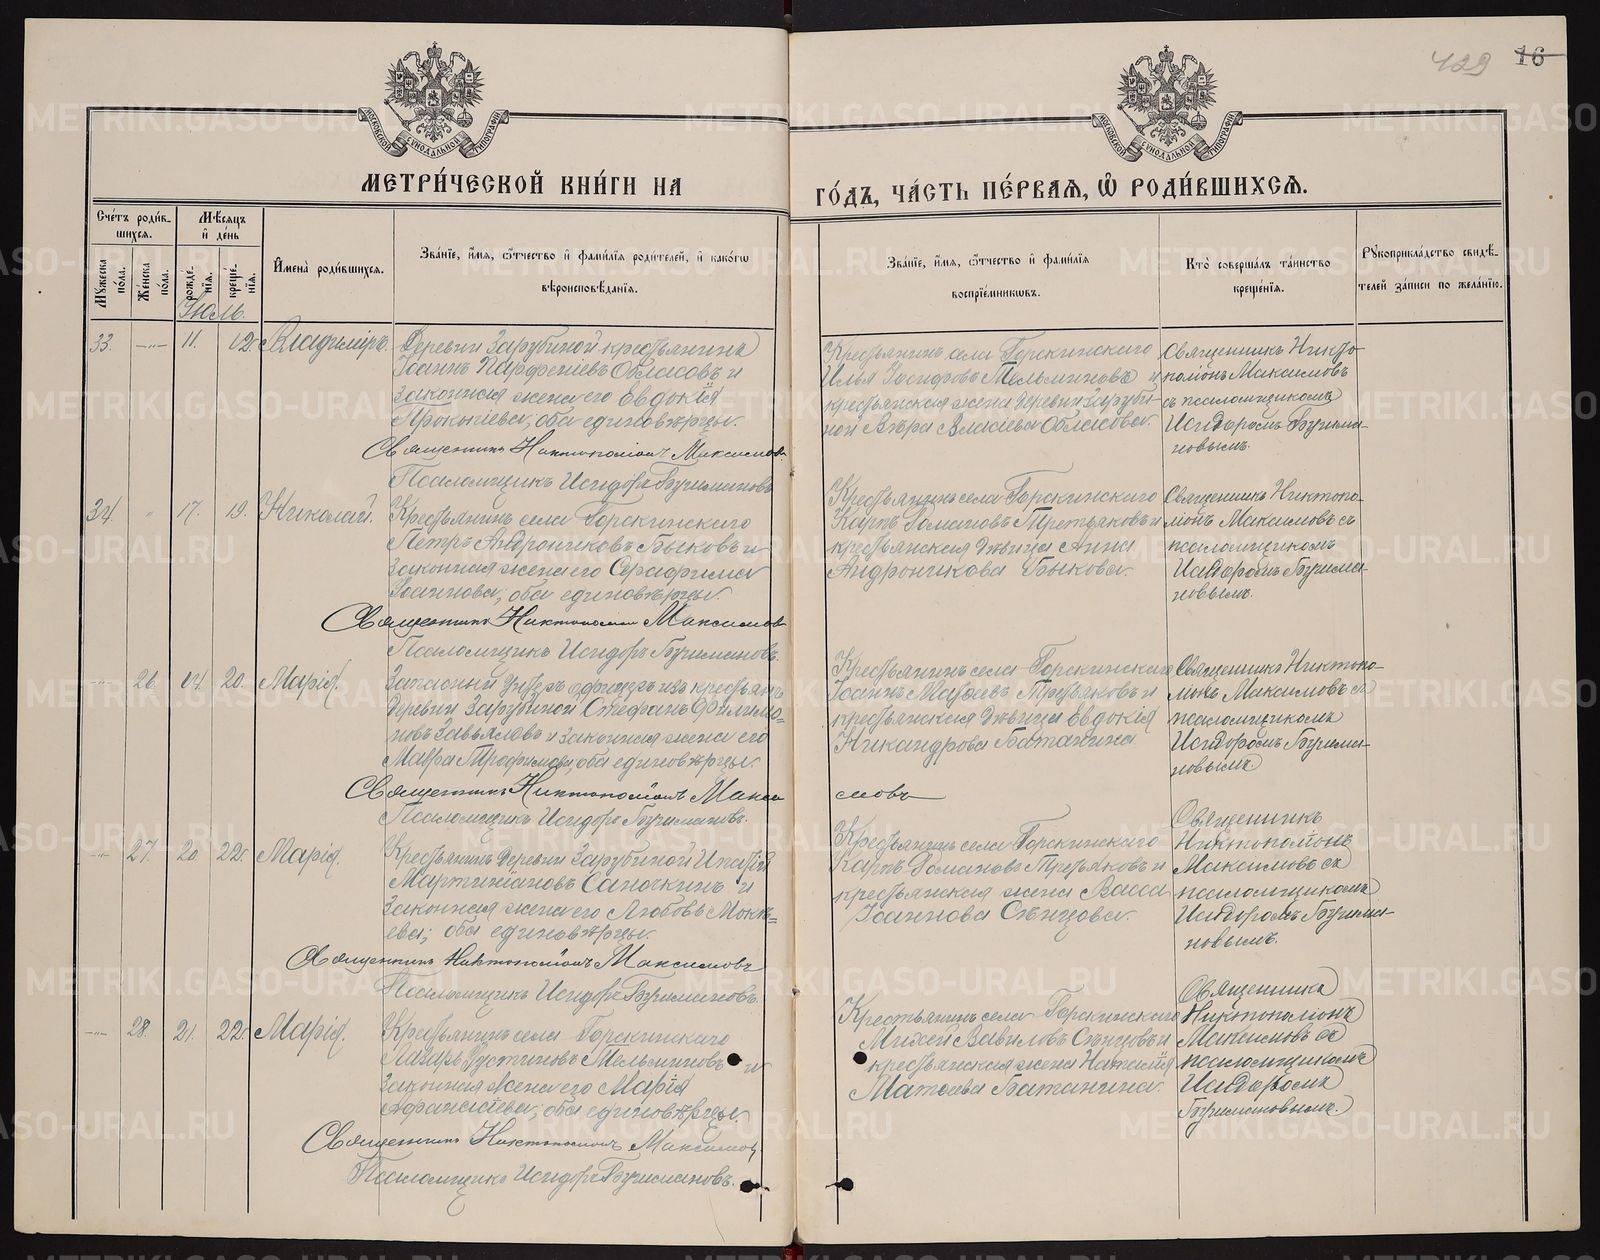 429 16
МЕТРИ́ЧЕСКОЙ КНИ́ГИ НА
ГО́ДЪ, ЧА́СТЬ ПЕ́РВАЯ, Ѡ҆ РОДИ́ВШИХСЯ.
Сче́тъ роди́в-
шихся.
Мѣ́сяцъ
и҆ де́нь
Мꙋ́жеска
по́ла.
Же́нска
по́ла.
рожде́-
нїя.
креще́-
нїя.
И҆мена̀ роди́вшихся.
Зва́нїе, и҆́мя, ѻ҆́тчество и҆ фами́лїя роди́телей, и҆ како́гѡ
вѣроисповѣ́данїя.
Зва́нїе, и҆́мя, ѻ҆́тчество и҆ фами́лїя
воспрїе́мникѡвъ.
Кто̀ соверша́лъ та́инство
креще́нїя.
Рꙋкоприкла́дство свидѣ́-
телей за́писи по жела́нїю.
Іюль.
33. -„- 11. 12. Владиміръ.
Деревни Зарубиной крестьянинъ
Іоаннъ Парфеніевъ Обласовъ и
законная жена его Евдокія
Прокопіева, оба единовѣрцы.
Священникъ Никтополіонъ Максимовъ
Псаломщикъ Исидоръ Бурмановъ
Крестьянинъ села Горскинскаго
Илья Іосифовъ Мельниковъ и
крестьянская жена деревни Заруби-
ной Вѣра Власіева Обласова.
Священникъ Никто-
поліонъ Максимовъ
съ псаломщикомъ
Исидоромъ
новымъ.
34. „ 17. 19. Николай.
Крестьянинъ села Горскинскаго
Петръ Андрониковъ Быковъ и
законная жена его Серафима
Іоаннова, оба единовѣрцы.
Священникъ Никтополіонъ Максимовъ
Псаломщикъ Исидоръ
Крестьянинъ села Горскинскаго
Карпъ Романовъ Третьяковъ и
крестьянская дѣвица Анна
Андроникова Быкова.
Священникъ Никтопо-
ліонъ Максимовъ съ
псаломщикомъ
Исидоромъ
новымъ.
-„- 26. 14. 20. Марія.
Запасный унтеръ офицеръ изъ крестьянъ
деревни Зарубиной Стефанъ Филимо-
новъ Завьяловъ и законная жена его
Мавра Трофимова, оба единовѣрцы.
Священникъ Никтополіонъ Макси
мовъ
Псаломщикъ Исидоръ
Крестьянинъ села Горскинскаго
Іоаннъ Матѳеевъ Третьяковъ и
крестьянская дѣвица Евдокія
Никандрова Батанина
Священникъ Никтопо-
ліонъ Максимовъ съ
псаломщикомъ
Исидоромъ
новымъ.
-„- 27. 20. 22. Марія.
Крестьянинъ деревни Зарубиной Ипатій
Мартиніановъ Саночкинъ и
законная жена его Любовь Мокѣ-
ева; оба единовѣрцы.
Священникъ Никтополіонъ Максимовъ
Псаломщикъ Исидоръ
Крестьянинъ села Горскинскаго
Карпъ Романовъ Третьяковъ и
крестьянская жена Васса
Іоаннова Сѣнцова.
Священникъ
Никтополіонъ
Максимовъ съ
псаломщикомъ
Исидоромъ
новымъ.
-„- 28. 21. 22. Марія.
Крестьянинъ села Горскинскаго
Лазарь Устиновъ Мельниковъ и
законная жена его Марія
Аѳанасіева, оба единовѣрцы.
Священникъ Никтополіонъ Максимовъ
Псаломщикъ Исидоръ
Крестьянинъ села Горскинскаго
Михей Вавиловъ Сѣнцовъ и
крестьянская жена Наталія
Матѳеева Батанина.
Священникъ
Никтополіонъ
Максимовъ съ
псаломщикомъ
Исидоромъ